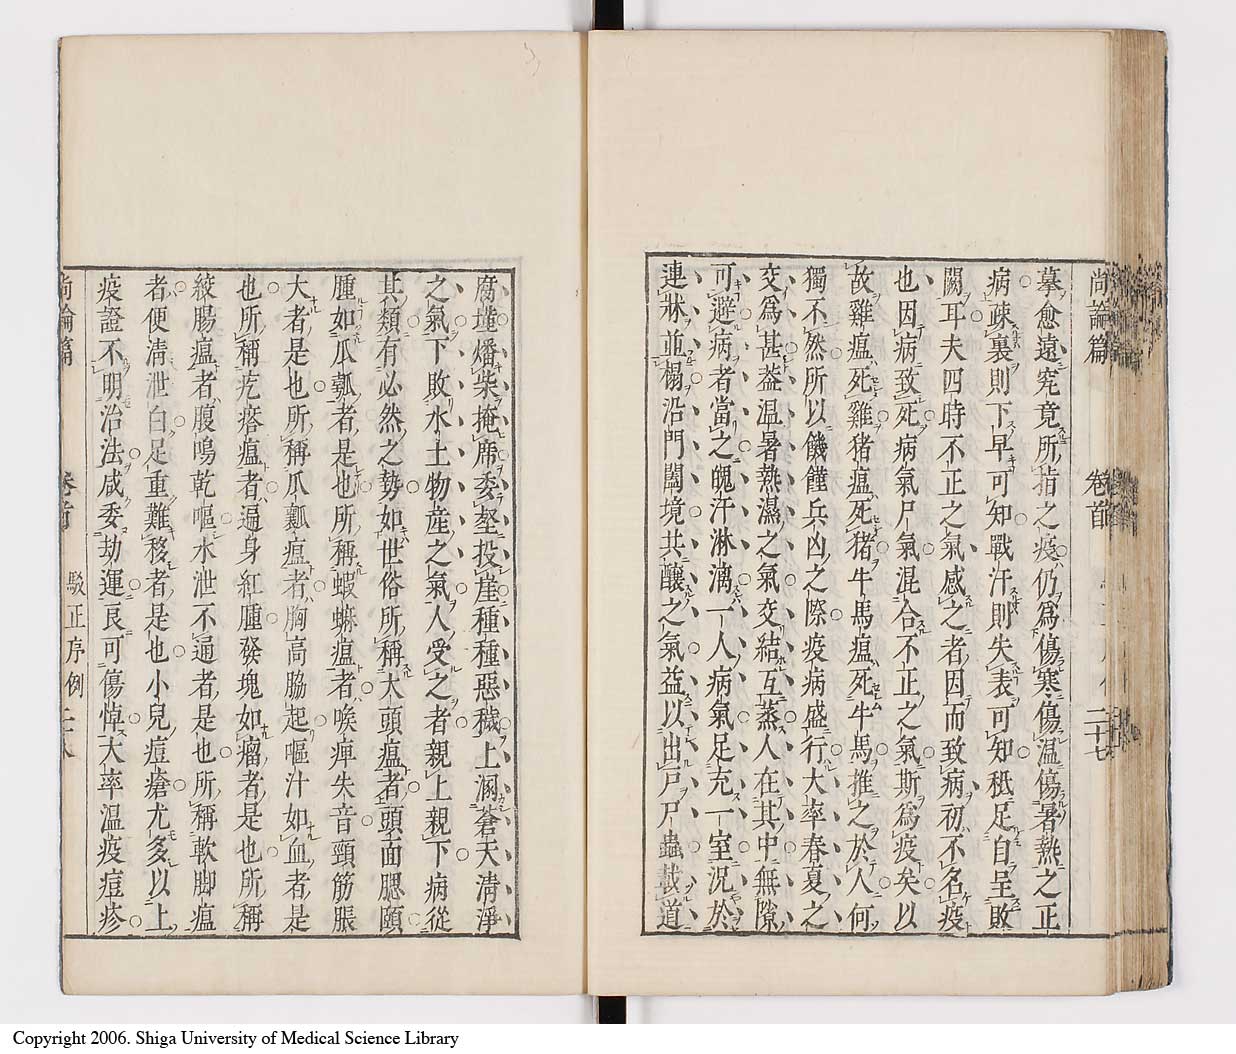 尚論篇 卷首 二十七
摹愈遠究竟所指之疫仍爲傷寒傷溫傷暑熱之正
病疎裏則下早可知戰汗則失表可知秪足自呈敗
闕耳夫四時不正之氣感之者因而致病初不名疫
也因病致死病氣尸氣混合不正之氣斯爲疫矣以
故雞瘟死雞猪瘟死猪牛馬瘟死牛馬推之於人何
獨不然所以饑饉兵凶之際疫病盛行大率春夏之
交爲甚葢溫暑熱濕之氣交結互蒸人在其中無隙
可避病者當之魄汗淋漓一人病氣足充一室況於
連牀並榻沿門闔境共釀之氣益以出戶尸蟲載道
腐墐燔柴掩席委壑投崖種種惡穢上溷蒼天清淨
之氣下敗水土物産之氣人受之者親上親下病從
其類有必然之勢如世俗所稱大頭瘟者頭面腮頤
腫如瓜瓠者是也所稱蝦蟆瘟者喉痺失音頸筋脹
大者是也所稱瓜瓤瘟者胸高脇起嘔汁如血者是
也所稱疙瘩瘟者遍身紅腫發塊如瘤者是也所稱
絞腸瘟者腹鳴乾嘔水泄不通者是也所稱軟脚瘟
者便清泄白足重難移者是也小兒痘瘡尤多以上
疫證不明治法咸委劫運良可傷悼大率溫疫痘疹
尚論篇 卷首 駁正序例 二十八
Copyright 2006. Shiga University of Medical Science Library